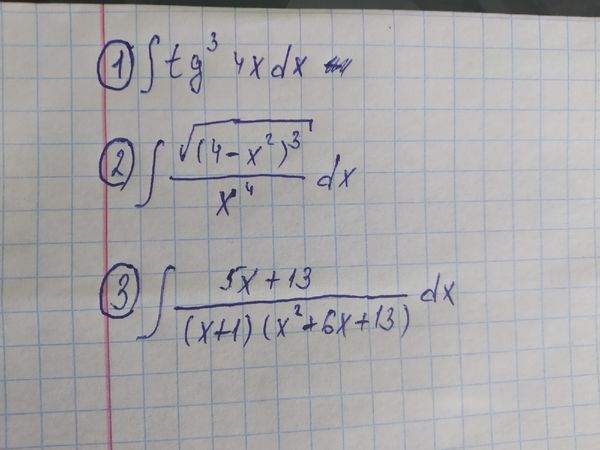 1 ∫ tg³ 4x dx
2 ∫ √((4-x²)³) / x⁴ dx
3 ∫ (5x+13) / ((x+1)(x²+6x+13)) dx